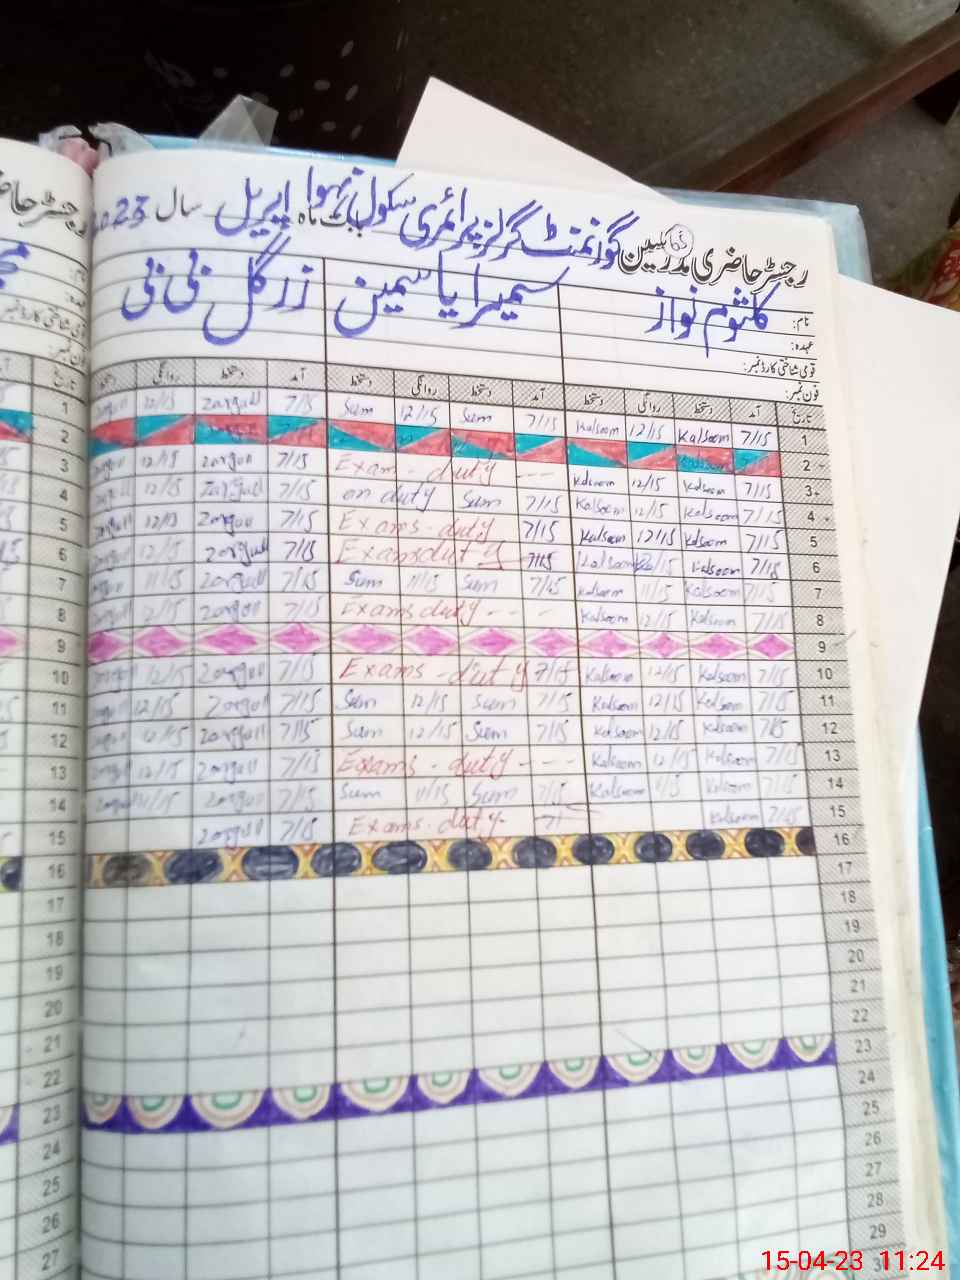 رجسٹر حاضری مدرسین گورنمنٹ گرلز پرائمری سکول بابت ماہ اپریل سال 2023
نام: کلثوم نواز سمیرا یاسمین زرگل بی بی
عہدہ:
قومی شناختی کارڈ نمبر:
فون نمبر:
تاریخ آمد دستخط روانگی دستخط آمد دستخط روانگی دستخط آمد دستخط روانگی دستخط
1 7/15 Kalsoom 12/15 Kalsoom 7/15 Sum 12/15 Sum 7/15 Zargull 12/15
2
3 7/15 Kalsoom 12/15 Kalsoom Exam - duty --- 7/15 Zargull 12/15
4 7/15 Kalsoom 12/15 Kalsoom 7/15 Sum on duty 7/15 Zargull 12/15
5 7/15 Kalsoom 12/15 Kalsoom 7/15 Exams - duty 7/15 Zargull
6 7/15 Kalsoom Kalsoom 7/15 Exams duty 7/15 Zargull 12/15
7 7/15 Kalsoom 11/15 Kalsoom 7/15 Sum 11/15 Sum 7/15 Zargull 11/15
8 7/15 Kalsoom 12/15 Kalsoom Exams duty --- 7/15 Zargull 12/15
9
10 7/15 Kalsoom 12/15 Kalsoom 7/15 Exams - duty 7/15 Zargull 12/15
11 7/15 Kalsoom 12/15 Kalsoom 7/15 Sum 12/15 Sum 7/15 Zargull 12/15
12 7/15 Kalsoom 12/15 Kalsoom 7/15 Sum 12/15 Sum 7/15 Zargull 12/15
13 7/15 Kalsoom 12/15 Kalsoom Exams - duty --- 7/15 Zargull 12/15
14 7/15 Kalsoom 11/15 Kalsoom 7/15 Sum 11/15 Sum 7/15 Zargull 11/15
15 7/15 Kalsoom Exams - duty 7/15 Zargull
16
17
18
19
20
21
22
23
24
25
26
27
28
29
15-04-23 11:24